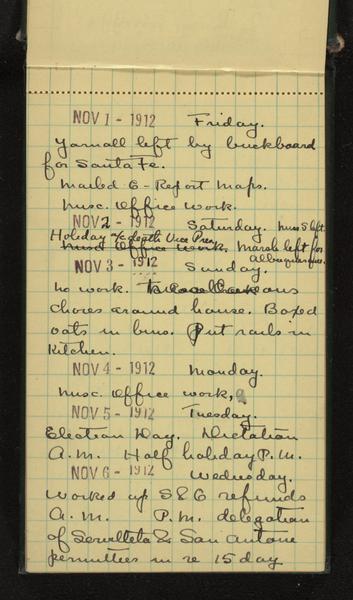 NOV 1 - 1912 Friday.
Yarnall left by buckboard
for Santa Fe.
Mailed 6 - Report Maps.
Misc. Office work.
NOV 2 - 1912 Saturday. Miss S left.
Holiday a/c death Vice Pres.
Misc Office work. Marsh left for
Albuquerque.
NOV 3 - 1912 Sunday.
No work. Miscellaneous
chores around house. Boxed
oats in bins. Put rails in
kitchen.
NOV 4 - 1912 Monday.
Misc. Office work,
NOV 5 - 1912 Tuesday.
Election Day. Dictation
A.M. Half holiday P.M.
NOV 6 - 1912 Wednesday.
Worked up S&G refunds
A.M. P.M. delegation
of Servilleta & San Antone
permittees in re 15 day